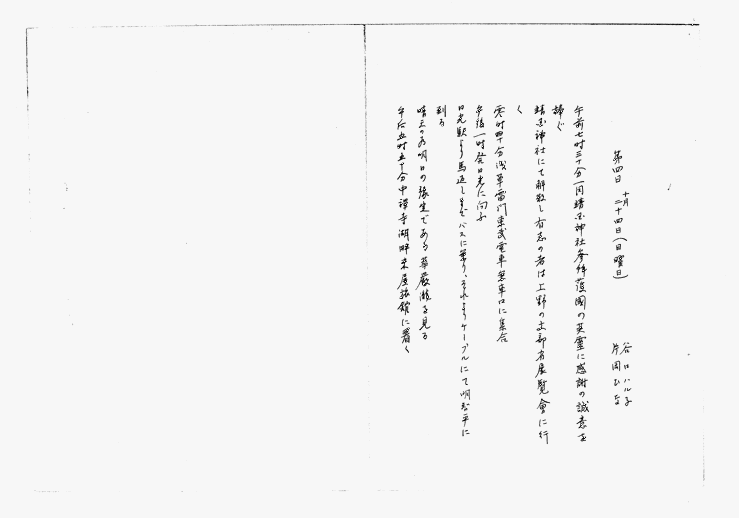 第四日 十月二十四日(日曜日)
谷口ハル子
片岡ひな
午前七時三十分一同靖国神社参拝護國の英霊に感謝の誠意を
捧ぐ
靖国神社にて解散し有志の者は上野の文部省展覧會に行
く
零時四十分浅草雷門東武電車乗車口に集合
午後一時発日光に向ふ
日光駅より馬返しまでバスに乗り、それよりケーブルにて明智平に
到る
晴天の為明日の予定である華厳瀧を見る
午后五時五十分中禅寺湖畔米屋旅館に着く